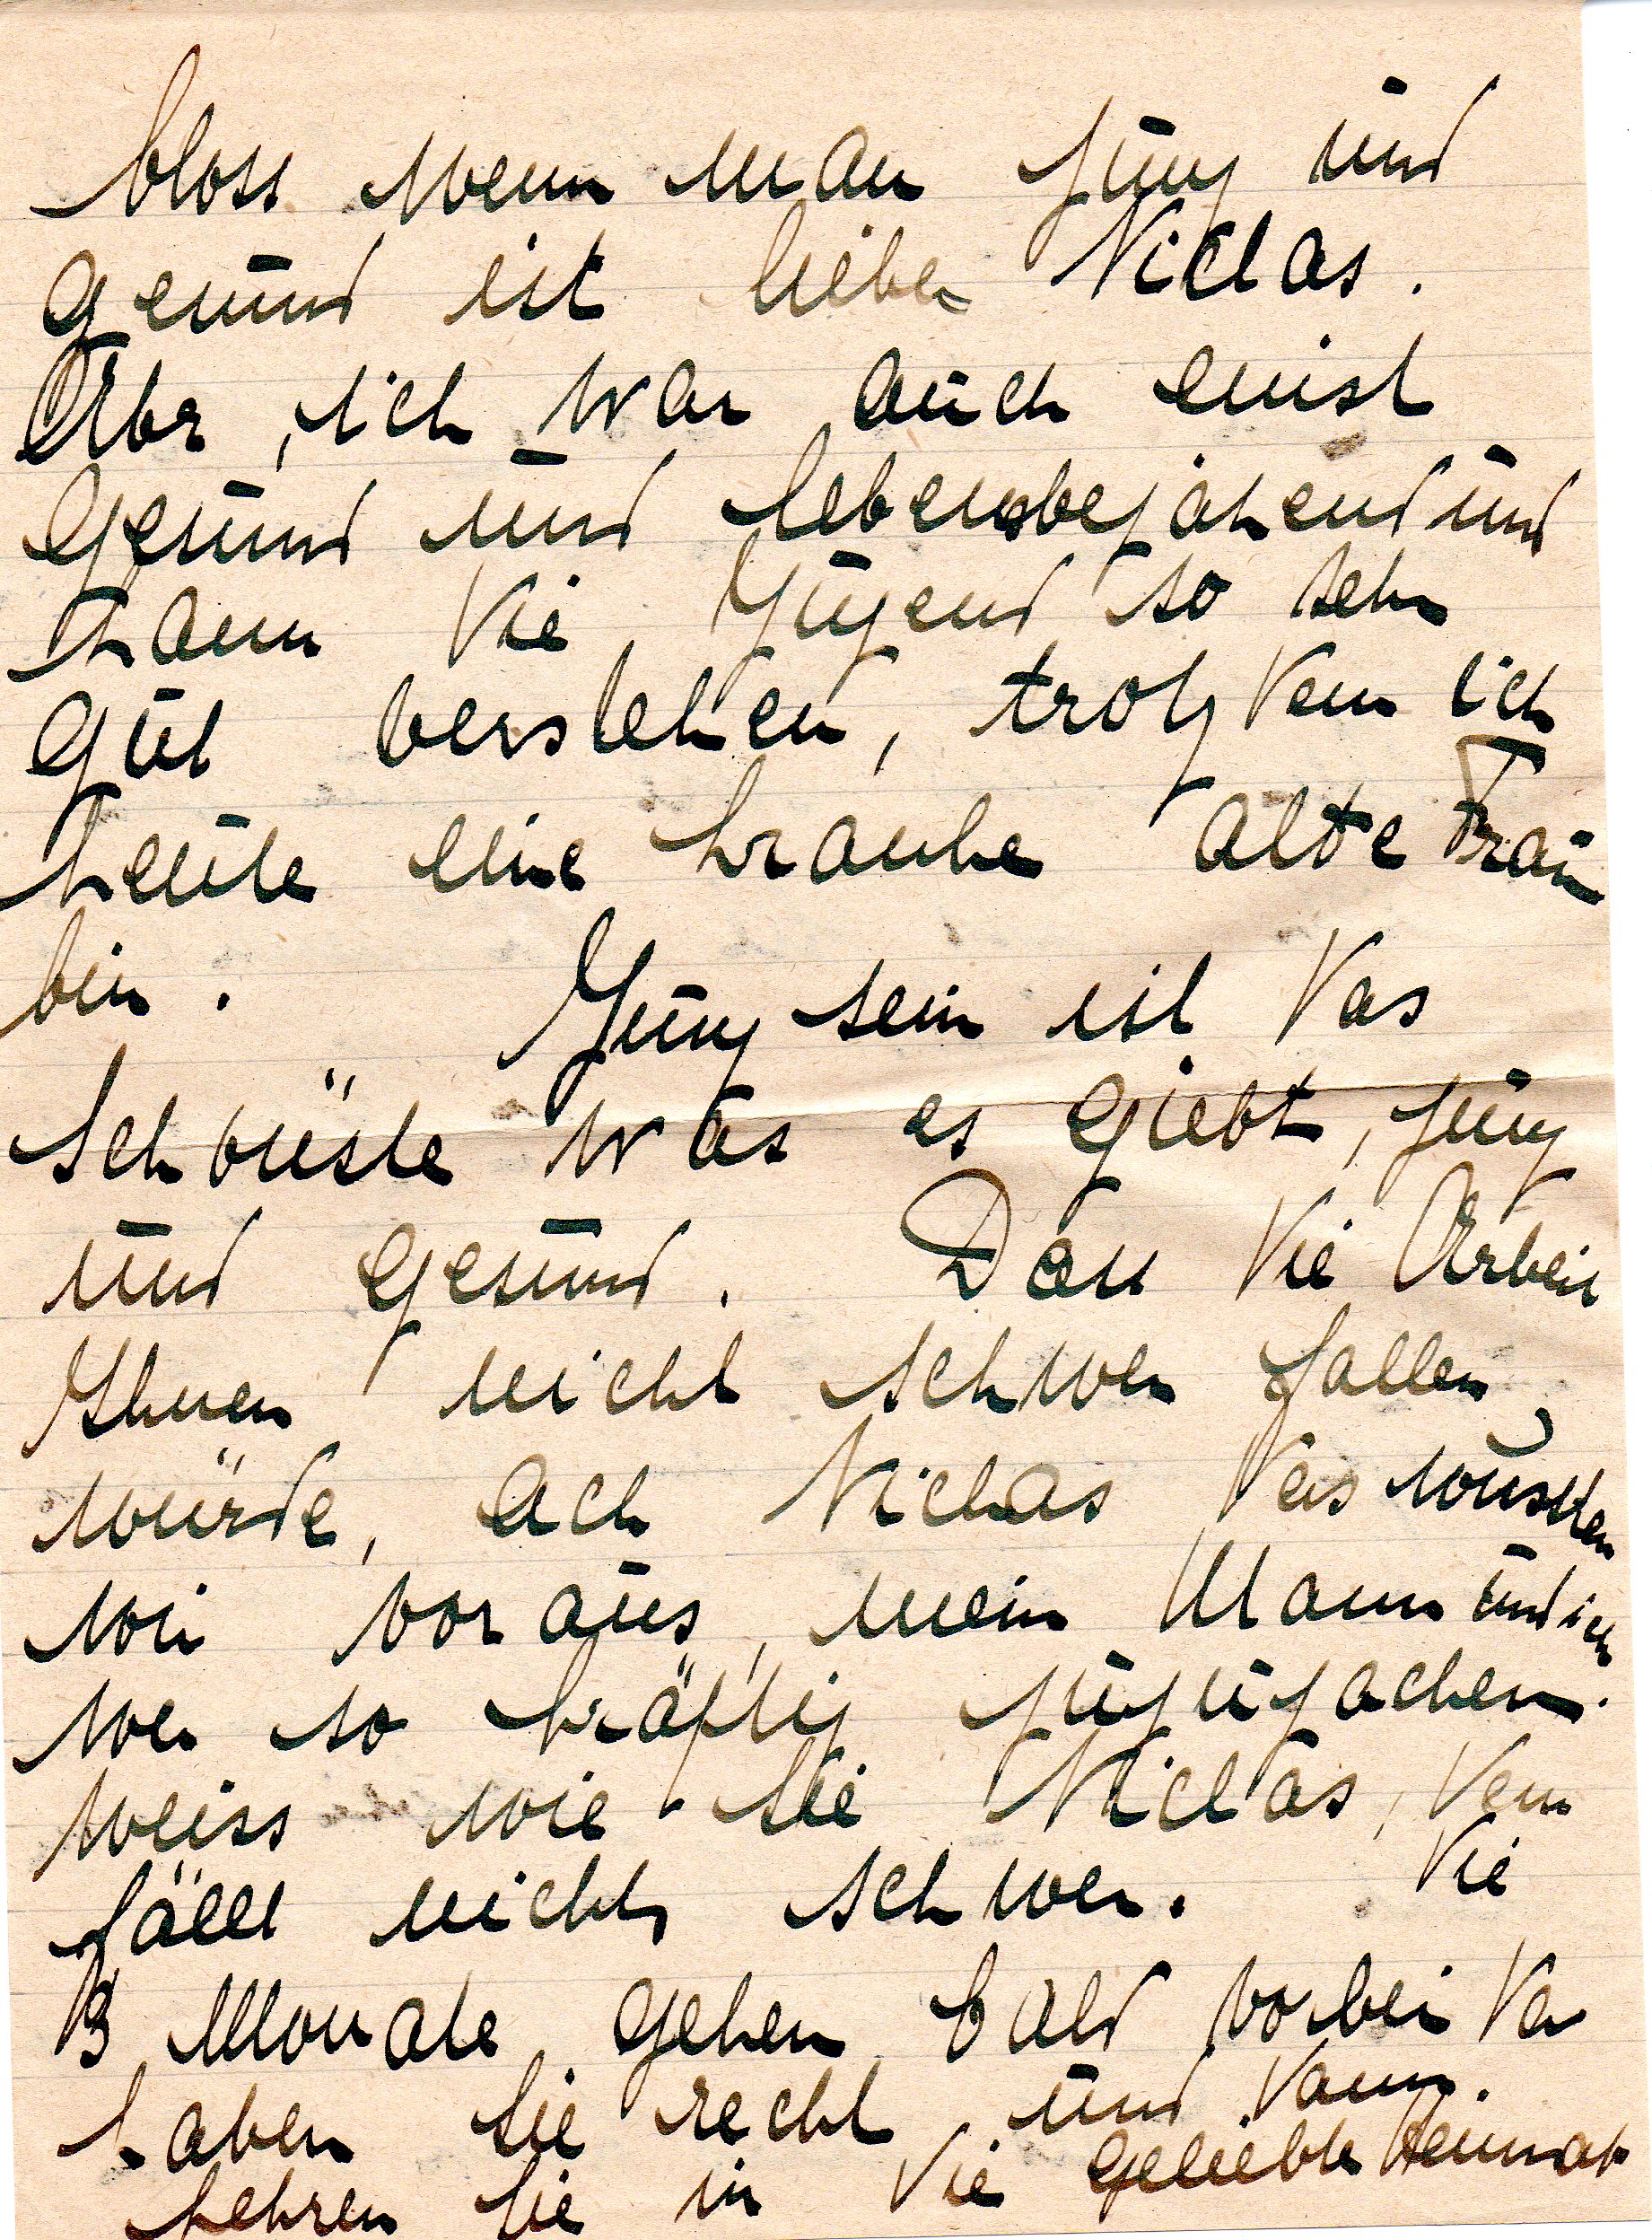 bloss wenn man jung und
gesund ist lieber Niclas.
Aber, ich war auch einst
gesund und lebensbejahend und
kann die Jugend so sehr
gut verstehen, trotzdem ich
heute eine kranke alte Frau
bin. Jung sein ist das
schönste was es giebt, jung
und gesund. Dass die Arbeit
Ihnen nicht schwer fallen
würde, ach Niclas das wussten
wir voraus, mein Mann und ich
wer so kräftig zuzupacken.
weiss wie Sie Niclas, dem
fällt nichts schwer. Die
3 Monate gehen bald vorbei da
haben Sie recht und dann.
kehren Sie in die geliebte Heimat